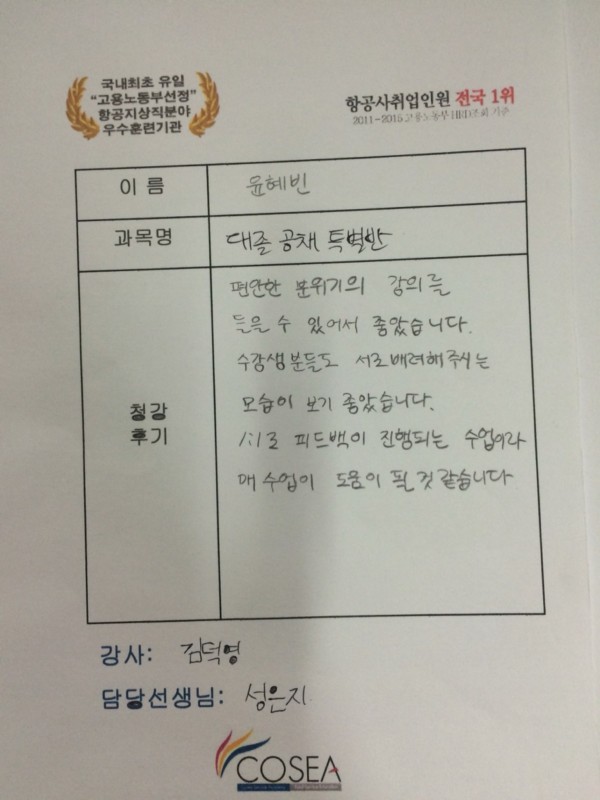 국내최초 유일
"고용노동부선정"
항공지상직분야
우수훈련기관
항공사취업인원 전국 1위
2011-2015 고용노동부 HRD조회 기준
이 름
윤혜빈
과목명
대졸 공채 특별반
청강
후기
편안한 분위기의 강의를
들을 수 있어서 좋았습니다.
수강생분들도 서로배려해주시는
모습이 보기 좋았습니다.
1:1로 피드백이 진행되는 수업이라
매 수업이 도움이 될 것 같습니다
강사: 김덕영
담당선생님: 성은지
COSEA